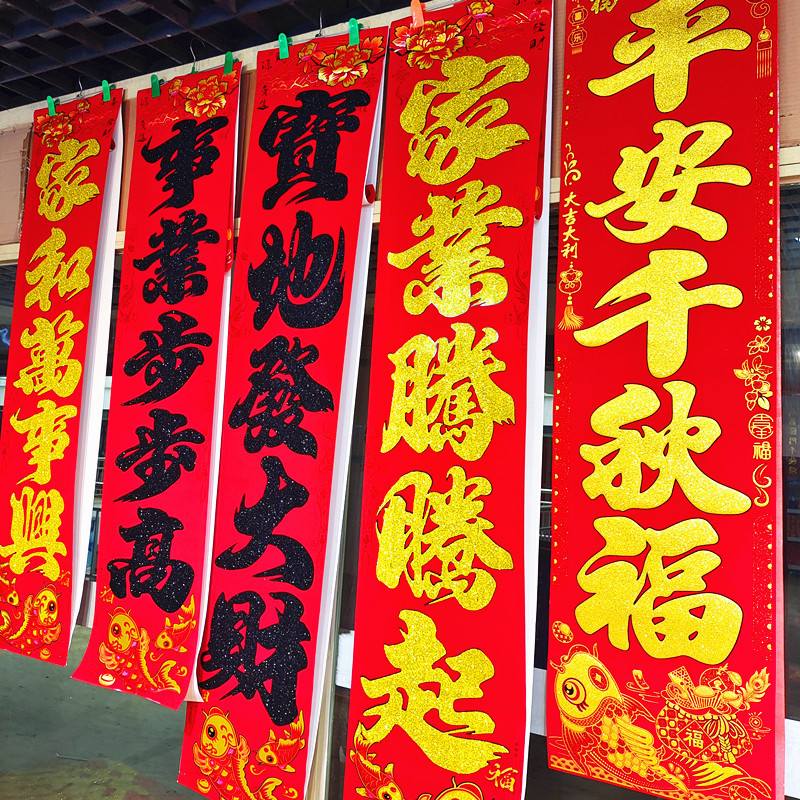 家和萬事興
事業步步高
寶地發大財
家業騰騰起
福
平安千秋福
大吉大利
福
福